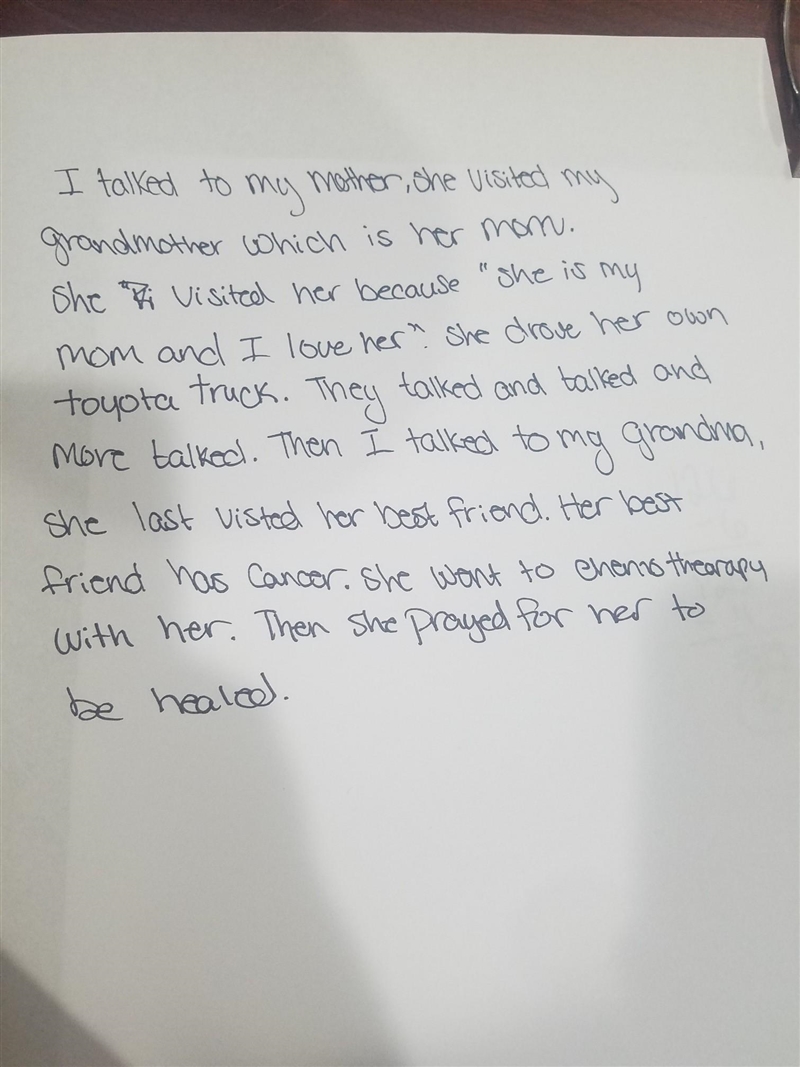 I talked to my mother, she visited my
grandmother which is her mom.
She visited her because "she is my
mom and I love her". She drove her own
toyota truck. They talked and talked and
more talked. Then I talked to my grandma,
she last visted her best friend. Her best
friend has cancer. She went to chemothearapy
with her. Then she prayed for her to
be healed.